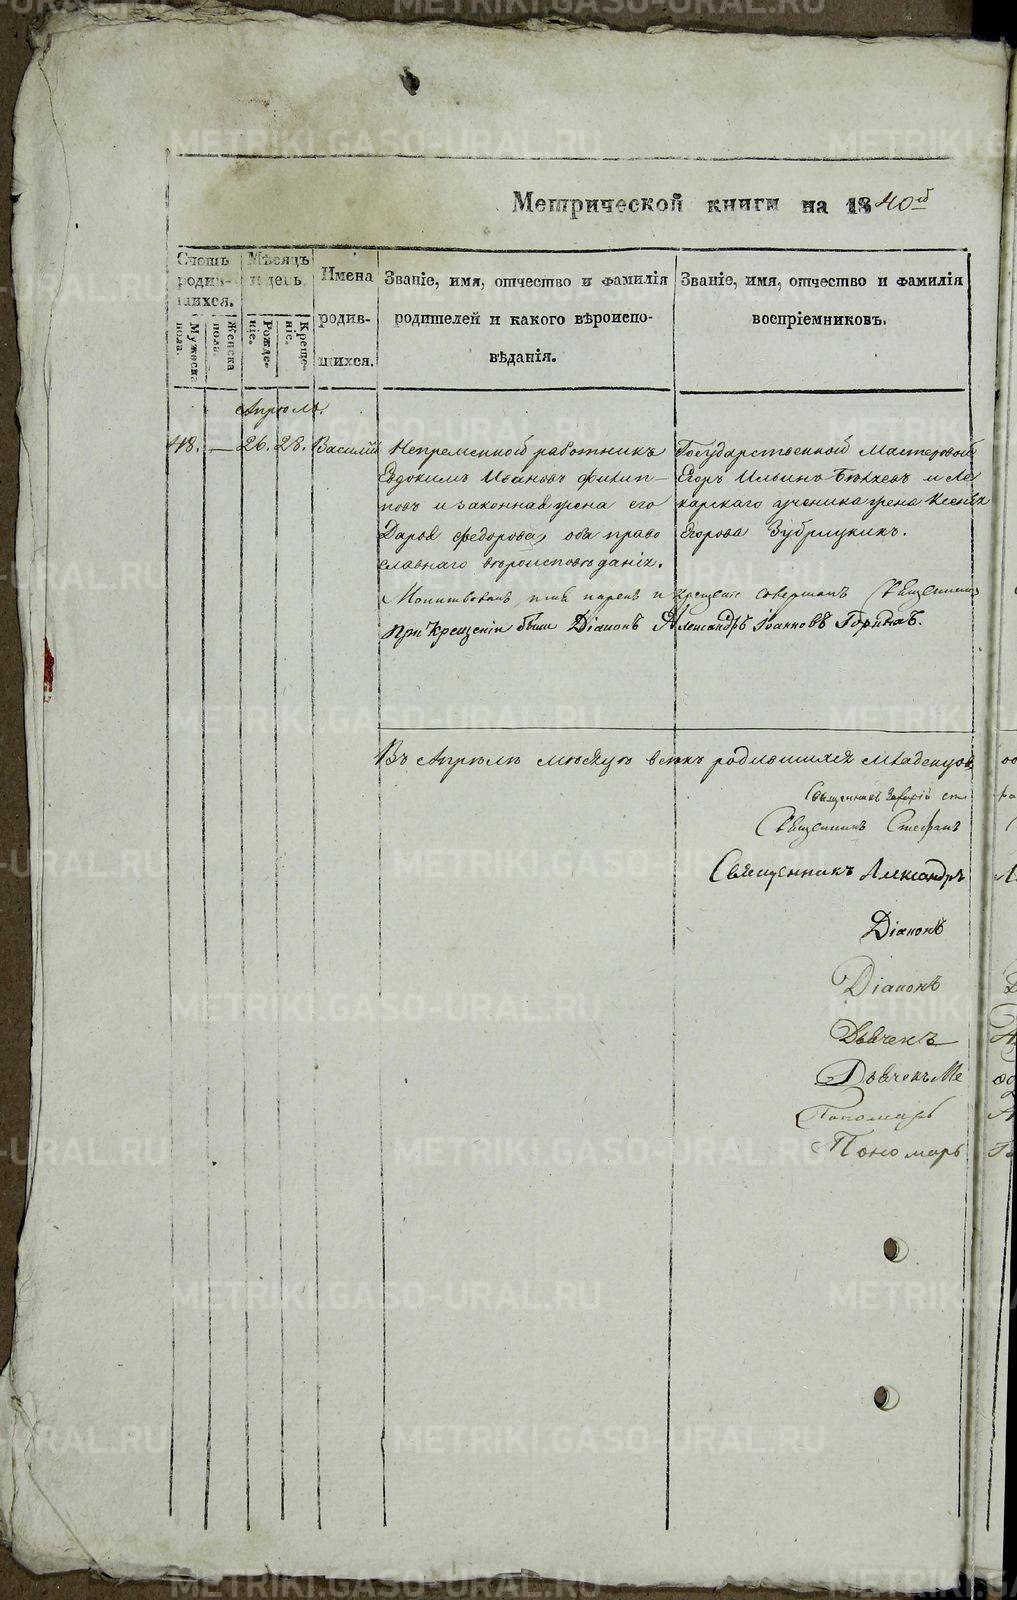 Метрической книги на 1840й
Счетъ родив-шихся.
Мѣсяцъ и день.
Имена родив-шихся.
Званіе, имя, отчество и фамилія
родителей и какого вѣроиспо-
вѣданія.
Званіе, имя, отчество и фамилія
воспріемниковъ.
Мужеска пола.
Женска пола.
Рожде-ніе.
Креще-ніе.
Апрѣль.
48. — 26. 28. Василій
Непременной работникъ
Евдокимъ Ивановъ Филип-
повъ и законная жена его
Дарья Федорова, оба право
славнаго вѣроисповѣданія.
Государственной мастеровой
Егоръ Ильинъ и Ле
карскаго ученика жена Ксенія
Егорова
Молитвовалъ, имя нарекъ и крещеніе совершалъ Священникъ
При крещеніи были Діаконъ Александръ Іоанновъ
Въ Апрѣлѣ мѣсяцѣ всѣхъ родившихся младенцовъ
Священникъ
Священникъ Стефанъ
Священникъ Александръ
Діаконъ
Діаконъ
Дьячекъ
Дьячекъ Ме
Пономарь
Пономарь
METRIKI.GASO-URAL.RU